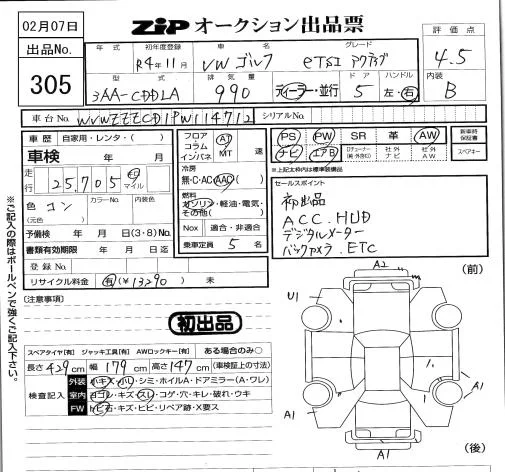 02月07日
ZiP オークション出品票
出品No.
305
年式 初年度登録 車名 グレード
R4年11月 VW ゴルフ eTSI アクティブ
型式 排気量 ドア ハンドル
3AA-CDDLA 990 ディーラー・並行 5 左・右
評価点
4.5
内装
B
車台No. WVWZZZCD1PW114712 シリアルNo.
車歴 自家用・レンタ・( )
車検 年 月
走行 25,705 km マイル
色 コン カラーNo. 内装色
(元色)
予備検 年 月 日(3・8)No.
書類有効期限 年 月 日迄
登録No.
リサイクル料金 有(¥13,290) 未
フロア
コラム
インパネ
AT
MT 速
冷房
無・C・AC・AAC( )
燃料
ガソリン・軽油・電気・
その他( )
Nox 適合・非適合
乗車定員 5 名
PS PW SR 革 AW 新車時保証書
ナビ エアB Dチューナー(純・外含む) 社外ナビ 社外AW スペアキー
※上記太枠内は標準装備品
セールスポイント
初出品
ACC.HUD
デジタルメーター
バックカメラ.ETC
(注意事項)
初出品
スペアタイヤ【有】 ジャッキ工具【有】 AWロックキー【有】 ある場合のみ○
長さ429cm 幅179cm 高さ147cm (車検証上の寸法)
検査記入
外装 小キズ・凹・シミ・ホイルA・ドアミラー(A・ワレ)
室内 ヨゴレ・キズ・スレ・コゲ・穴・キレ・破れ・ウキ
FW トビ石・キズ・ヒビ・リペア跡・X要ス
※ご記入の際はボールペンで強くご記入下さい。
(前)
A2
U1
1
1.
A1
A1
A1
(後)